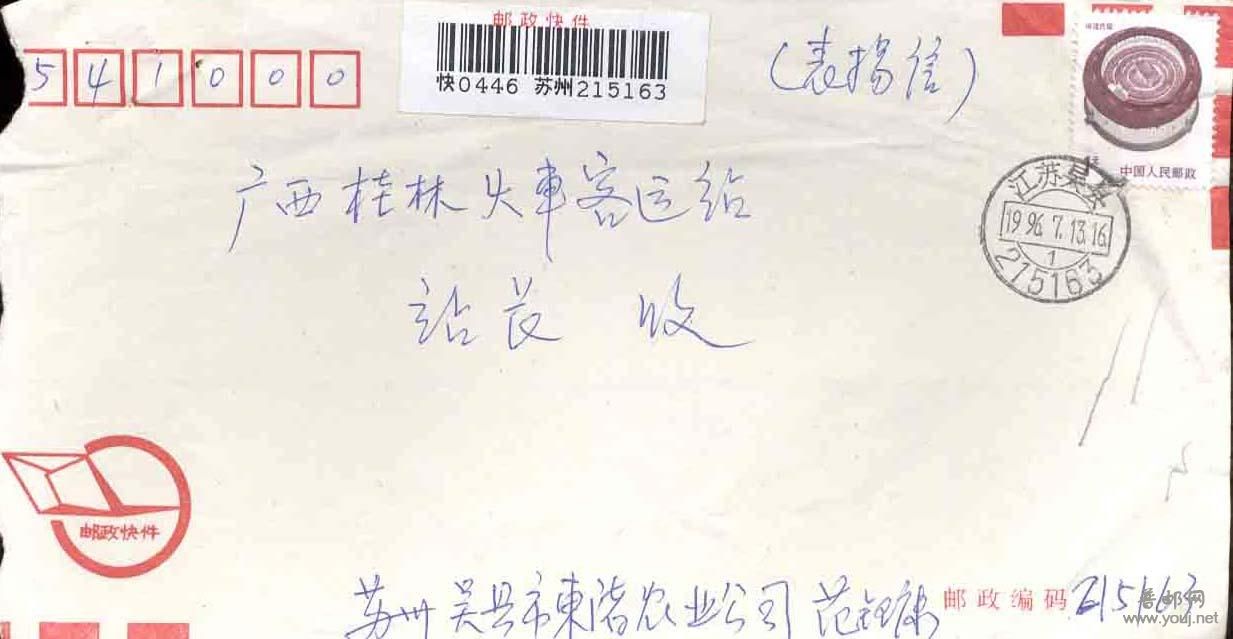 邮政快件
快0446 苏州215163
541000
(表扬信)
福建民居
中国人民邮政
江苏
1996.7.13.16
1
215163
广西桂林火車客运站
站长 收
邮政快件
苏州吴县市東渚农业公司 范
邮政编码 215163
普邮网
www.youj.net